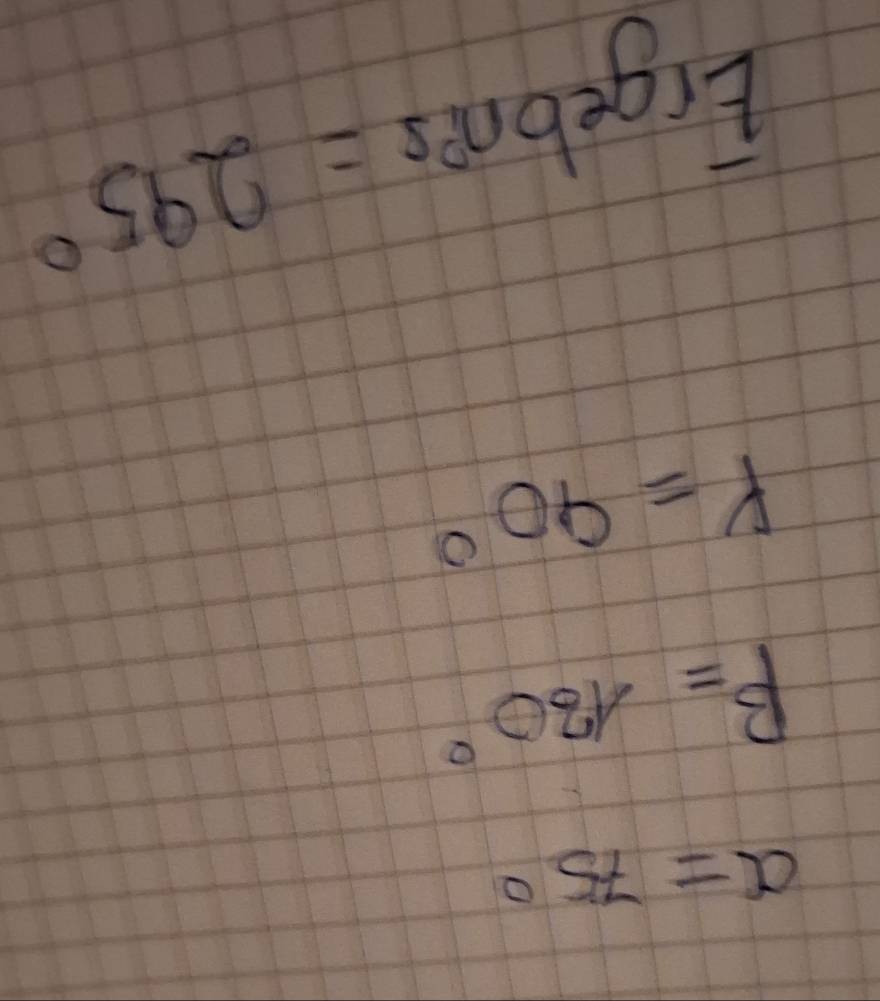 α = 75°
β = 130°
γ = 90°
Ergebnis = 295°